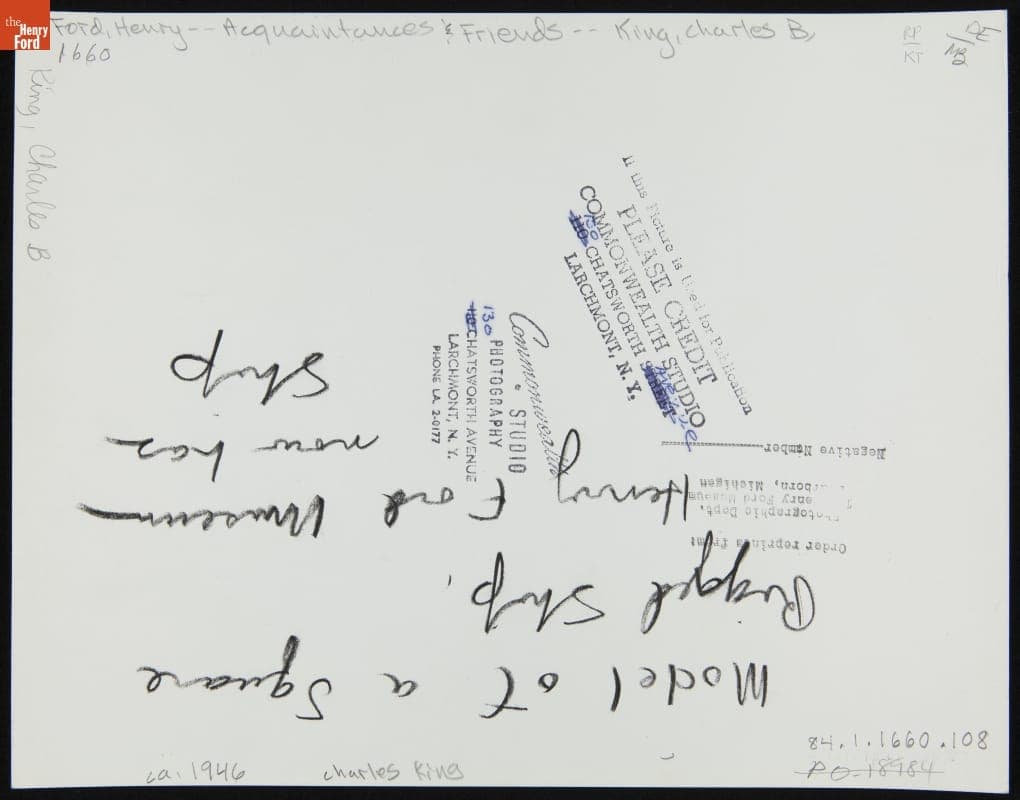 the
Henry
Ford
Ford, Henry -- Acquaintances & Friends -- King, Charles B.
1660
RP
KT
DE
MB
King, Charles B
If this Picture is Used for Publication
PLEASE CREDIT
COMMONWEALTH STUDIO
130 CHATSWORTH Avenue
LARCHMONT, N. Y.
Commonwealth
• STUDIO
PHOTOGRAPHY
130 CHATSWORTH AVENUE
LARCHMONT, N. Y.
PHONE LA 2-0177
Model of a Square
Rigged Ship,
Henry Ford Museum
now has
Ship
Order reprints from:
Photographic Dept.
Henry Ford Museum
Dearborn, Michigan
Negative Number
84.1.1660.108
P.O. 18984
ca. 1946
Charles King